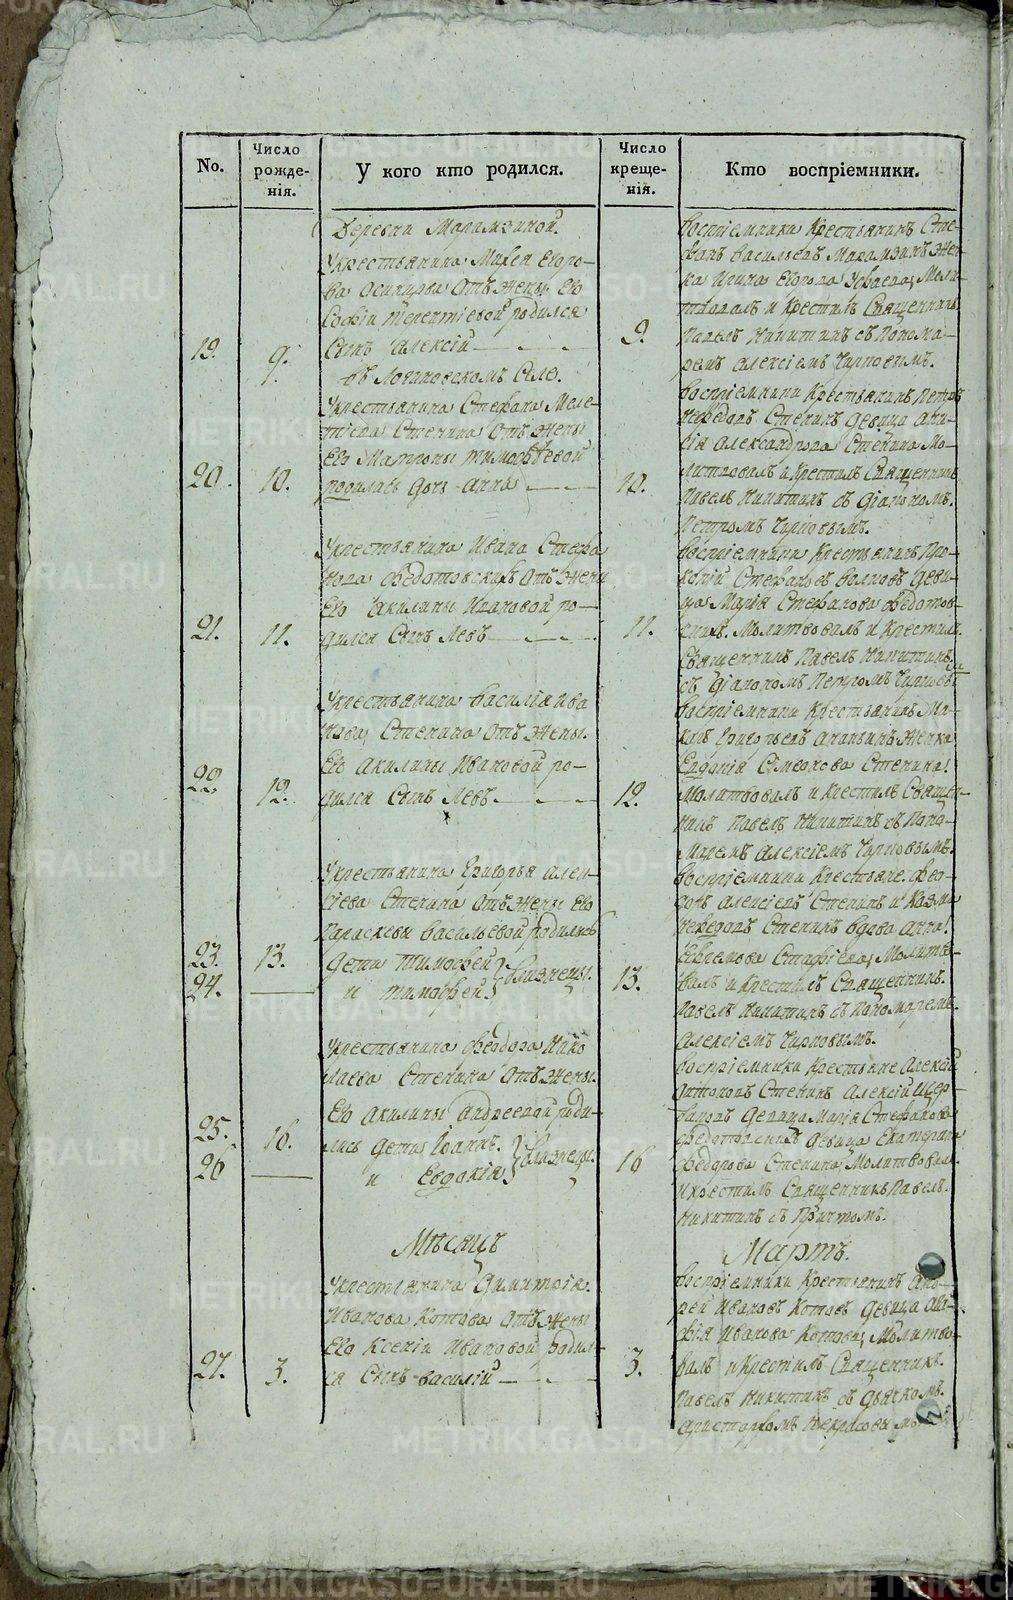 No.
Число рожде-нія.
У кого кто родился.
Число креще-нія.
Кто воспріемники.
Деревни Маламзиной.
Укрестьянина Михея Егоро-
ва Осинцова Отъ жены Его
Софіи Терентіевой родился
19. 9. Сынъ Алексій
9.
воспріемники Крестьянинъ Сте-
фанъ Васильевъ Маламзинъ Жен-
ка Ирина Егорова Молит-
вовалъ и Крестилъ Священникъ
Павелъ Никитинъ съ Понома-
ремъ Алексіемъ
въ Логиновскомъ Селе.
Укрестьянина Стефана Меле-
тіева Степина Отъ жены
Его Матроны Тимофѣевой
20. 10. родилась дочь Анна
10.
воспріемники Крестьянинъ Петръ
Степинъ девица
Александрова Степина Мо-
литвовалъ и Крестилъ Священникъ
Павелъ Никитинъ съ Діакономъ
Петромъ
Укрестьянина Ивана Стефа
нова Федотовскихъ Отъ жены
Его Акилины Ивановой ро-
21. 11. дился Сынъ Левъ
11.
воспріемники Крестьянинъ Про-
копій Стефановъ Волковъ деви-
ца Марія Стефанова Федотов-
скихъ. Молитвовалъ и Крестилъ
Священникъ Павелъ Никитинъ
съ Діакономъ Петромъ
Укрестьянина Василія Ива
нова Степина Отъ жены
Его Акилины Ивановой ро-
22. 12. дился Сынъ Левъ
12.
воспріемники Крестьянинъ
Григорьевъ Ананьинъ Женка
Евдокія Симеонова Степина
Молитвовалъ и Крестилъ Священ-
никъ Павелъ Никитинъ съ Поно-
маремъ Алексіемъ
Укрестьянина Григорья Алек-
сіева Степина Отъ жены Его
Параскевы Васильевой родились
23. 13. Дети Тимофей
24. и Тимофей близнецы.
13.
воспріемники Крестьяне Фео-
Алексіевъ Степинъ и Козма
Степинъ вдова Анна
Молитво-
валъ и Крестилъ Священникъ
Павелъ Никитинъ съ Пономаремъ
Алексіемъ
Укрестьянина Феодора Нико
лаева Степина Отъ жены
Его Акилины Андреевой роди-
25. 16. лись дети Іоаннъ.
26 и Евдокія близнецы.
16
воспріемники Крестьяне Алексій
Антоновъ Степинъ Алексій Щер-
баковъ девица Марія Стефанова
Федотовскихъ девица Екатерина
Федорова Степина Молитвовалъ
и крестилъ Священникъ Павелъ
Никитинъ съ Причтомъ.
Мѣсяцъ Мартъ.
Укрестьянина Димитрія
Иванова Котова Отъ жены
Его Ксеніи Ивановой родил-
27. 3. ся Сынъ Василій
3.
воспріемники Крестьянинъ Анд-
рей Ивановъ Котовъ девица
Иванова Котова Молитво-
валъ и Крестилъ Священникъ
Павелъ Никитинъ съ Дьячкомъ
Аристархомъ Некрасовымъ
METRIKI.GASO-URAL.RU